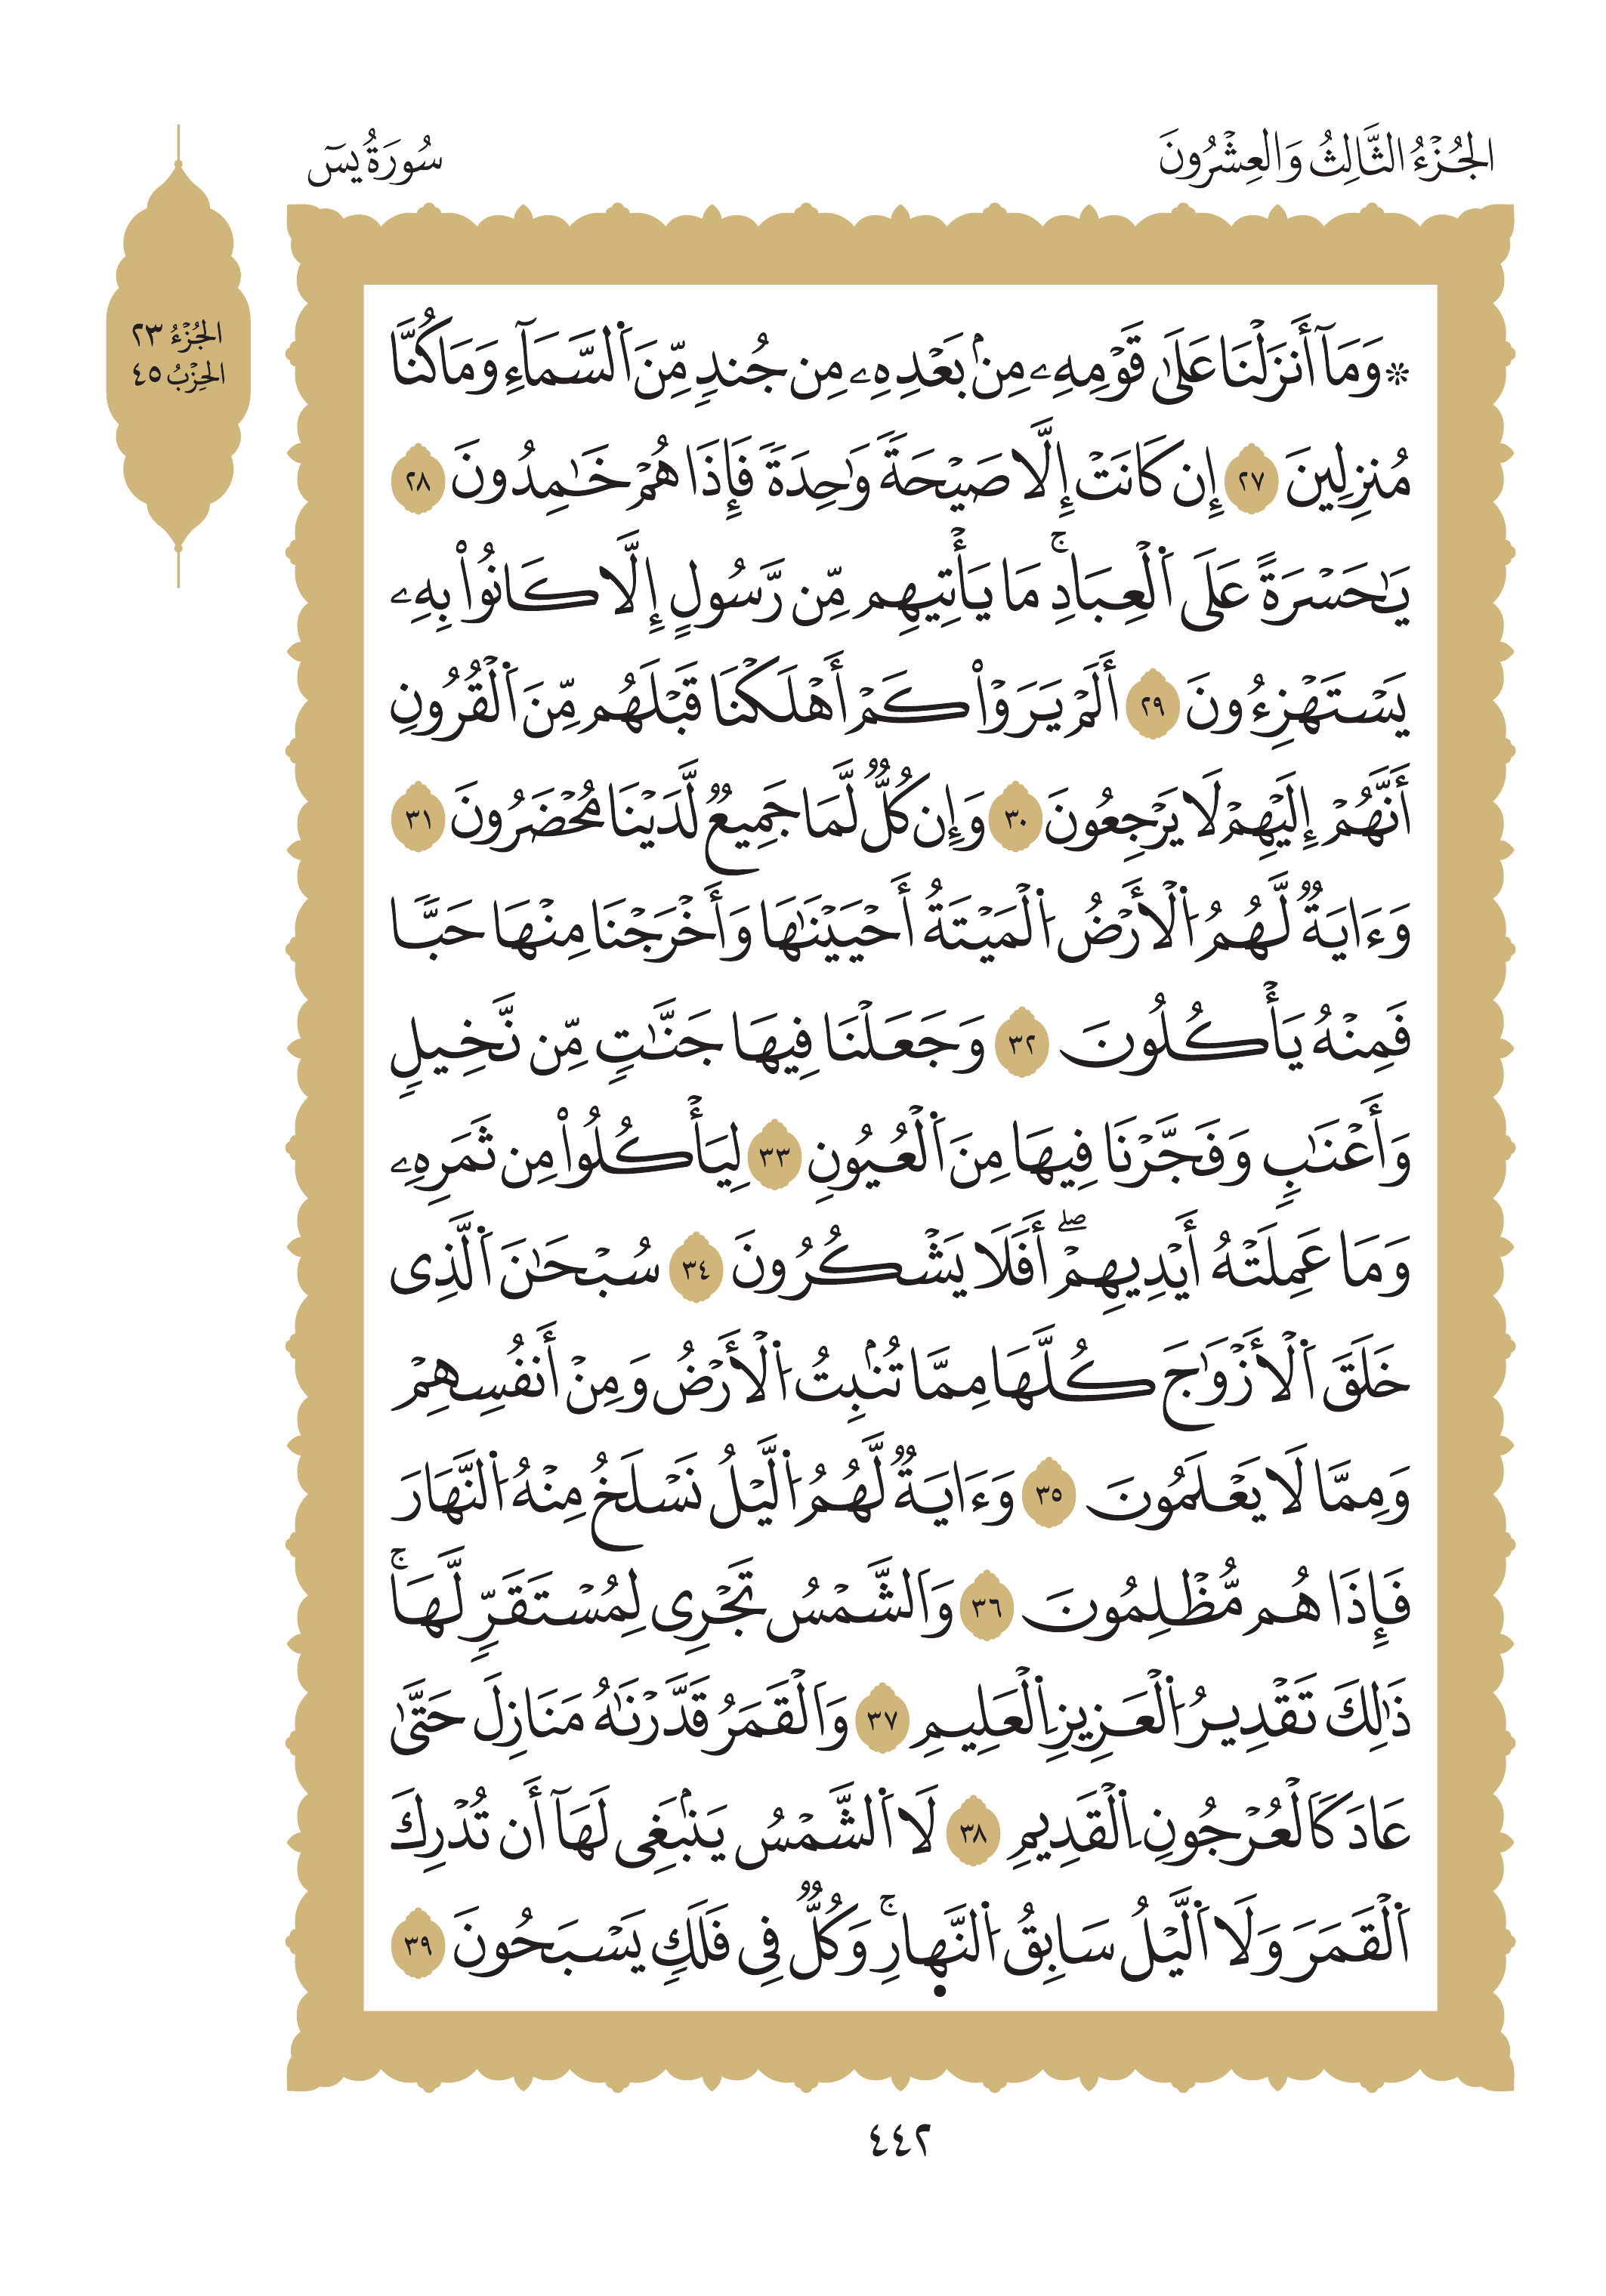 الجُزْءُ الثَّالِثُ وَالعِشْرُونَ
سُورَةُ يسٓ
الجُزْءُ ٢٣
الحِزْبُ ٤٥
۞ وَمَآ أَنزَلْنَا عَلَىٰ قَوْمِهِۦ مِنۢ بَعْدِهِۦ مِن جُندٖ مِّنَ اَ۬لسَّمَآءِ وَمَا كُنَّا
مُنزِلِينَ ٢٧ إِن كَانَتْ إِلَّا صَيْحَةٗ وَٰحِدَةٗ فَإِذَا هُمْ خَٰمِدُونَ ٢٨
يَٰحَسْرَةً عَلَى اَ۬لْعِبَادِۚ مَا يَأْتِيهِم مِّن رَّسُولٍ إِلَّا كَانُواْ بِهِۦ
يَسْتَهْزِءُونَ ٢٩ أَلَمْ يَرَوْاْ كَمْ أَهْلَكْنَا قَبْلَهُم مِّنَ اَ۬لْقُرُونِ
أَنَّهُمْ إِلَيْهِمْ لَا يَرْجِعُونَ ٣٠ وَإِن كُلّٞ لَّمَا جَمِيعٞ لَّدَيْنَا مُحْضَرُونَ ٣١
وَءَايَةٞ لَّهُمُ اُ۬لْأَرْضُ اُ۬لْمَيْتَةُ أَحْيَيْنَٰهَا وَأَخْرَجْنَا مِنْهَا حَبّٗا
فَمِنْهُ يَأْكُلُونَ ٣٢ وَجَعَلْنَا فِيهَا جَنَّٰتٖ مِّن نَّخِيلٖ
وَأَعْنَٰبٖ وَفَجَّرْنَا فِيهَا مِنَ اَ۬لْعُيُونِ ٣٣ لِيَأْكُلُواْ مِن ثَمَرِهِۦ
وَمَا عَمِلَتْهُ أَيْدِيهِمْۖ أَفَلَا يَشْكُرُونَ ٣٤ سُبْحَٰنَ اَ۬لَّذِى
خَلَقَ اَ۬لْأَزْوَٰجَ كُلَّهَا مِمَّا تُنۢبِتُ اُ۬لْأَرْضُ وَمِنْ أَنفُسِهِمْ
وَمِمَّا لَا يَعْلَمُونَ ٣٥ وَءَايَةٞ لَّهُمُ اُ۬لَّيْلُ نَسْلَخُ مِنْهُ اُ۬لنَّهَارَ
فَإِذَا هُم مُّظْلِمُونَ ٣٦ وَاَلشَّمْسُ تَجْرِى لِمُسْتَقَرّٖ لَّهَاۚ
ذَٰلِكَ تَقْدِيرُ اُ۬لْعَزِيزِ اِ۬لْعَلِيمِ ٣٧ وَاَلْقَمَرُ قَدَّرْنَٰهُ مَنَازِلَ حَتَّىٰ
عَادَ كَاَلْعُرْجُونِ اِ۬لْقَدِيمِ ٣٨ لَا اَ۬لشَّمْسُ يَنۢبَغِى لَهَآ أَن تُدْرِكَ
اَ۬لْقَمَرَ وَلَا اَ۬لَّيْلُ سَابِقُ اُ۬لنَّه۪ارِۚ وَكُلّٞ فِى فَلَكٖ يَسْبَحُونَ ٣٩
٤٤٢